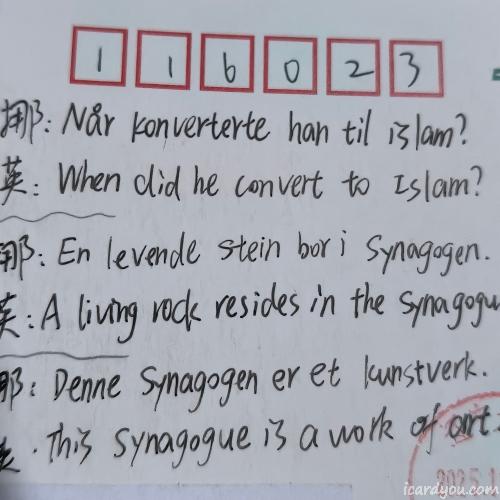 116023
挪: Når konverterte han til islam?
英: When did he convert to Islam?
挪: En levende stein bor i Synagogen.
英: A living rock resides in the Synagogu
挪: Denne Synagogen er et kunstverk.
英. This synagogue is a work of art.
icardyou.com